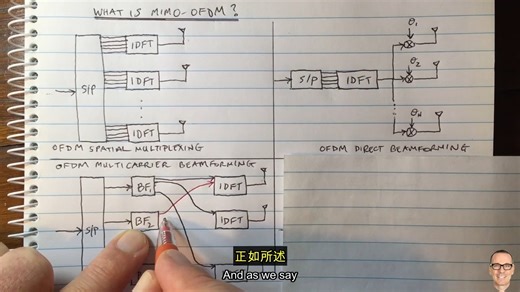 WHAT IS MIMO-OFDM?
S/P
IDFT
IDFT
IDFT
OFDM SPATIAL MULTIPLEXING
S/P
IDFT
θ1
θ2
θN
OFDM DIRECT BEAMFORMING
OFDM MULTICARRIER BEAMFORMING
S/P
BF1
BF2
IDFT
IDFT
正如所述
And as we say